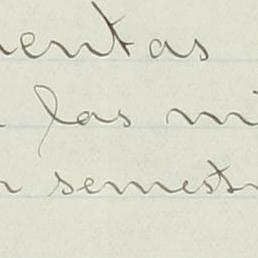 entas
las mi
n semestr